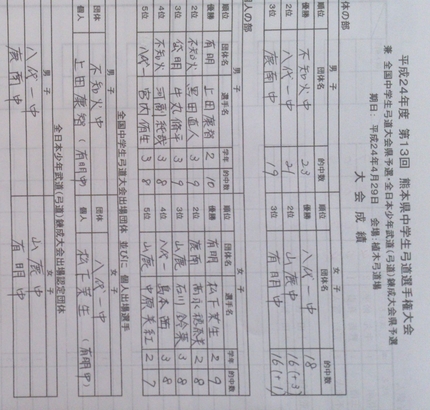 平成24年度 第13回 熊本県中学生弓道選手権大会
兼 全国中学生弓道大会県予選・全日本少年武道(弓道)錬成大会県予選
期日: 平成24年4月29日 会場:植木弓道場
大会成績
体の部
男子 女子
順位 団体名 的中数 順位 団体名 的中数
優勝 不知火中 23 優勝 八代一中 18
2位 八代一中 21 2位 山鹿中 16(+3)
3位 鹿南中 19 3位 有明中 16(+1)
人の部
男子 女子
順位 団体名 選手名 学年 的中数 順位 団体名 選手名 学年 的中数
優勝 有明 上田 2 10 優勝 有明 松下 2 9
2位 不知火 直人 3 9 2位 鹿南 2 8
3位 有明 牛丸 3 9 3位 山鹿 石川 3 8
4位 不知火 河副 3 8 4位 八代一 島本 3 8
5位 八代一 宮内 3 8 5位 山鹿 中原 2 7
全国中学生弓道大会出場団体 並びに 個人出場選手
男子 女子
団体 不知火中 団体 八代一中
個人 上田 (有明中) 個人 松下 (有明中)
全日本少年武道(弓道)錬成大会出場認定団体
男子 女子
八代一中 山鹿中
鹿南中 有明中